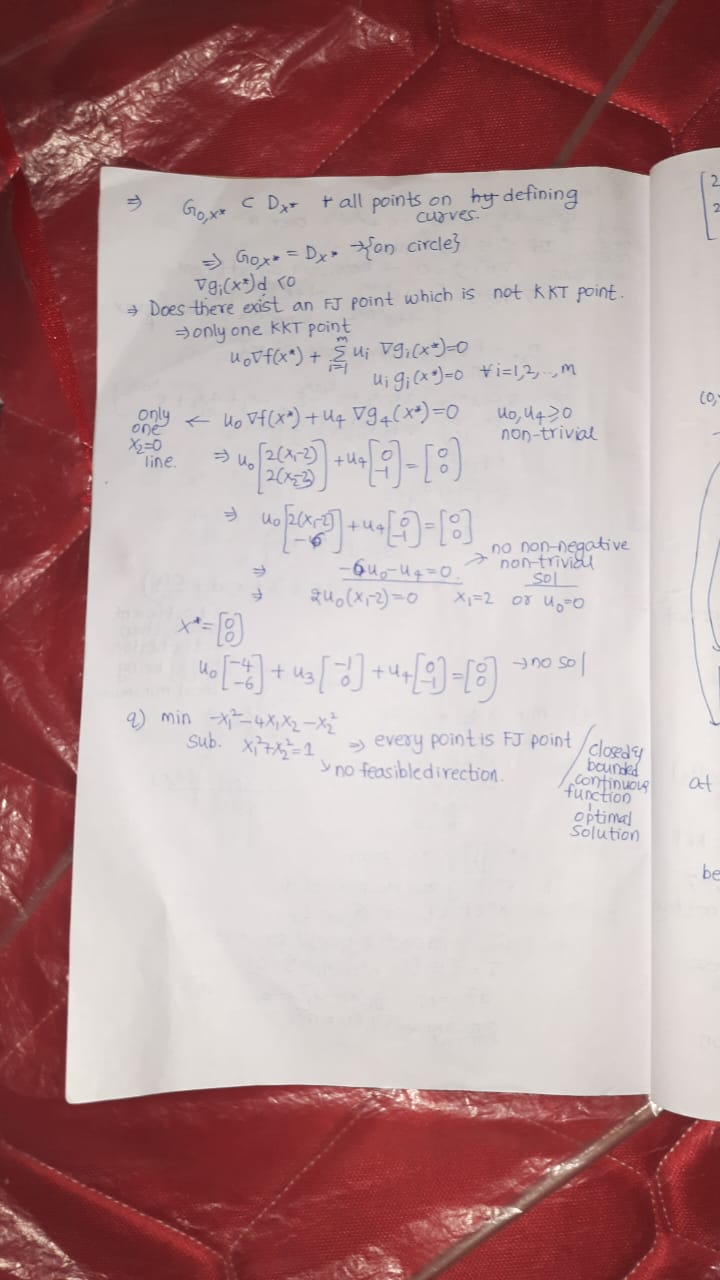 ⇒ G₀,ₓ* ⊂ Dₓ* + all points on defining
curves.
⇒ G₀,ₓ* = Dₓ* → {on circle}
∇gᵢ(x*)d < 0
→ Does there exist an FJ point which is not KKT point.
⇒ only one KKT point
u₀∇f(x*) + Σᵢ₌₁ᵐ uᵢ ∇gᵢ(x*)=0
uᵢ gᵢ(x*)=0 ∀ i=1,2,..,m
only one x₂=0 line. ← u₀ ∇f(x*) + u₄ ∇g₄(x*)=0 u₀,u₄ ⩾ 0
non-trivial
⇒ u₀ [2(x₁-2) 2(x₂-3)] + u₄ [0 -1] = [0 0]
⇒ u₀ [2(x₁-2) -6] + u₄ [0 -1] = [0 0]
⇒ -6u₀-u₄=0. → no non-negative non-trivial sol
⇒ 2u₀(x₁-2)=0 x₁=2 or u₀=0
x*=[0 0]
u₀ [-4 -6] + u₃ [-1 0] + u₄ [0 -1] = [0 0] → no sol
q) min -x₁²-4x₁x₂-x₂²
sub. x₁²+x₂²=1 ⇒ every point is FJ point
↘ no feasible direction.
closed &
bounded
continuous
function
↓
optimal
solution
[2
2
(0,
at
be